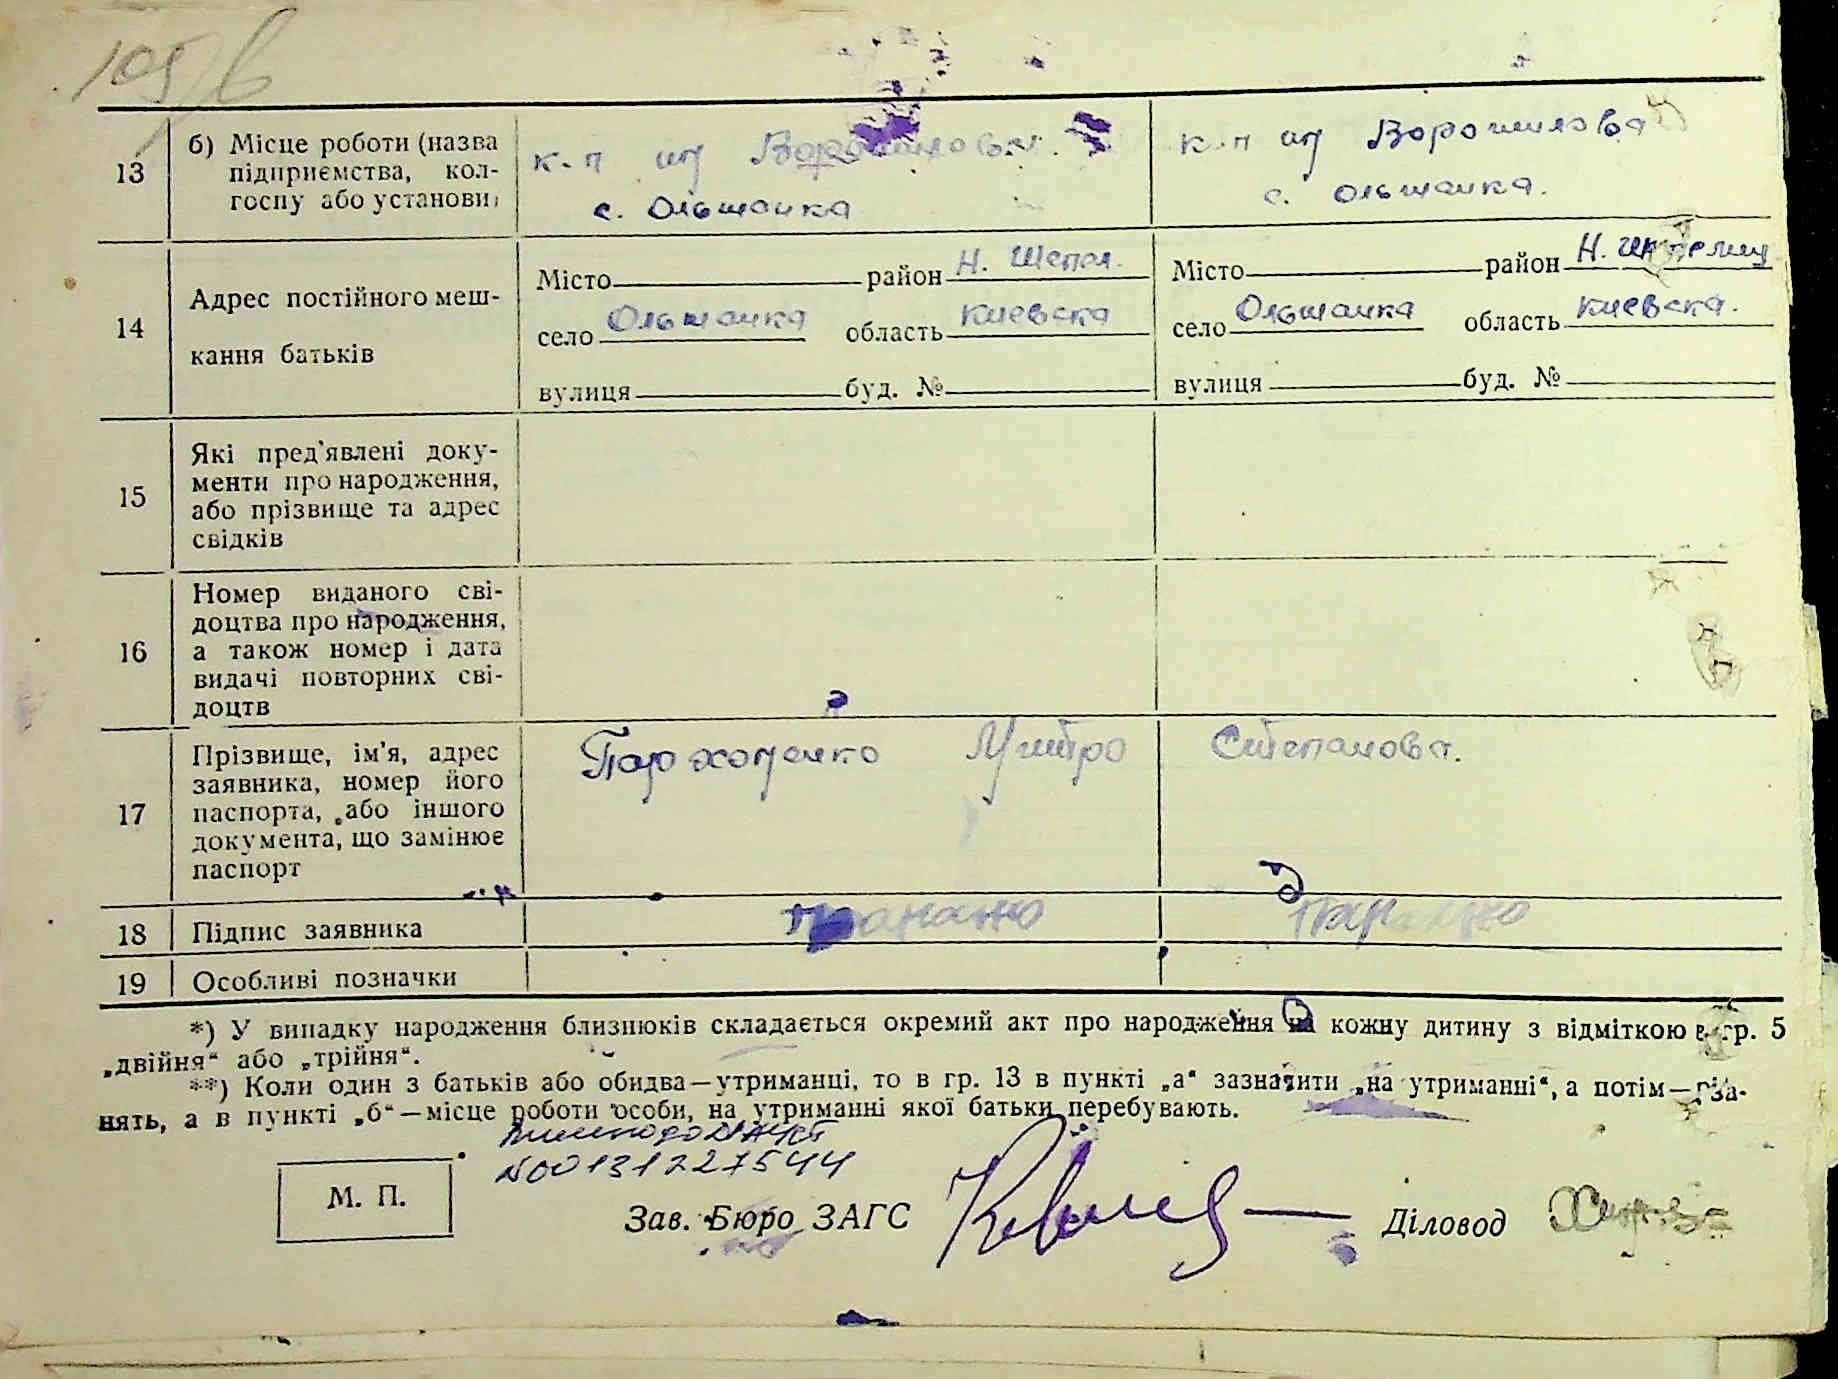 105
13
б) Місце роботи (назва
підприємства, кол-
госпу або установи)
к-п им Ворошилова
с. Ольшанка
к-п им Ворошилова
с. Ольшанка.
14
Адрес постійного меш-
кання батьків
Місто район Н. Шепел.
село Ольшанка область Киевска
вулиця буд. №
Місто район Н.
село Ольшанка область Киевска.
вулиця буд. №
15
Які пред'явлені доку-
менти про народження,
або прізвище та адрес
свідків
16
Номер виданого сві-
доцтва про народження,
а також номер і дата
видачі повторних сві-
доцтв
17
Прізвище, ім'я, адрес
заявника, номер його
паспорта, або іншого
документа, що замінює
паспорт
Пархоменко Митро Степанова.
18
Підпис заявника
19
Особливі позначки
*) У випадку народження близнюків складається окремий акт про народження на кожну дитину з відміткою в гр. 5
„двійня“ або „трійня“.
**) Коли один з батьків або обидва—утриманці, то в гр. 13 в пункті „а“ зазначити „на утриманні“, а потім—
нять, а в пункті „б“—місце роботи особи, на утриманні якої батьки перебувають.
№00131227544
М. П.
Зав. Бюро ЗАГС
Діловод